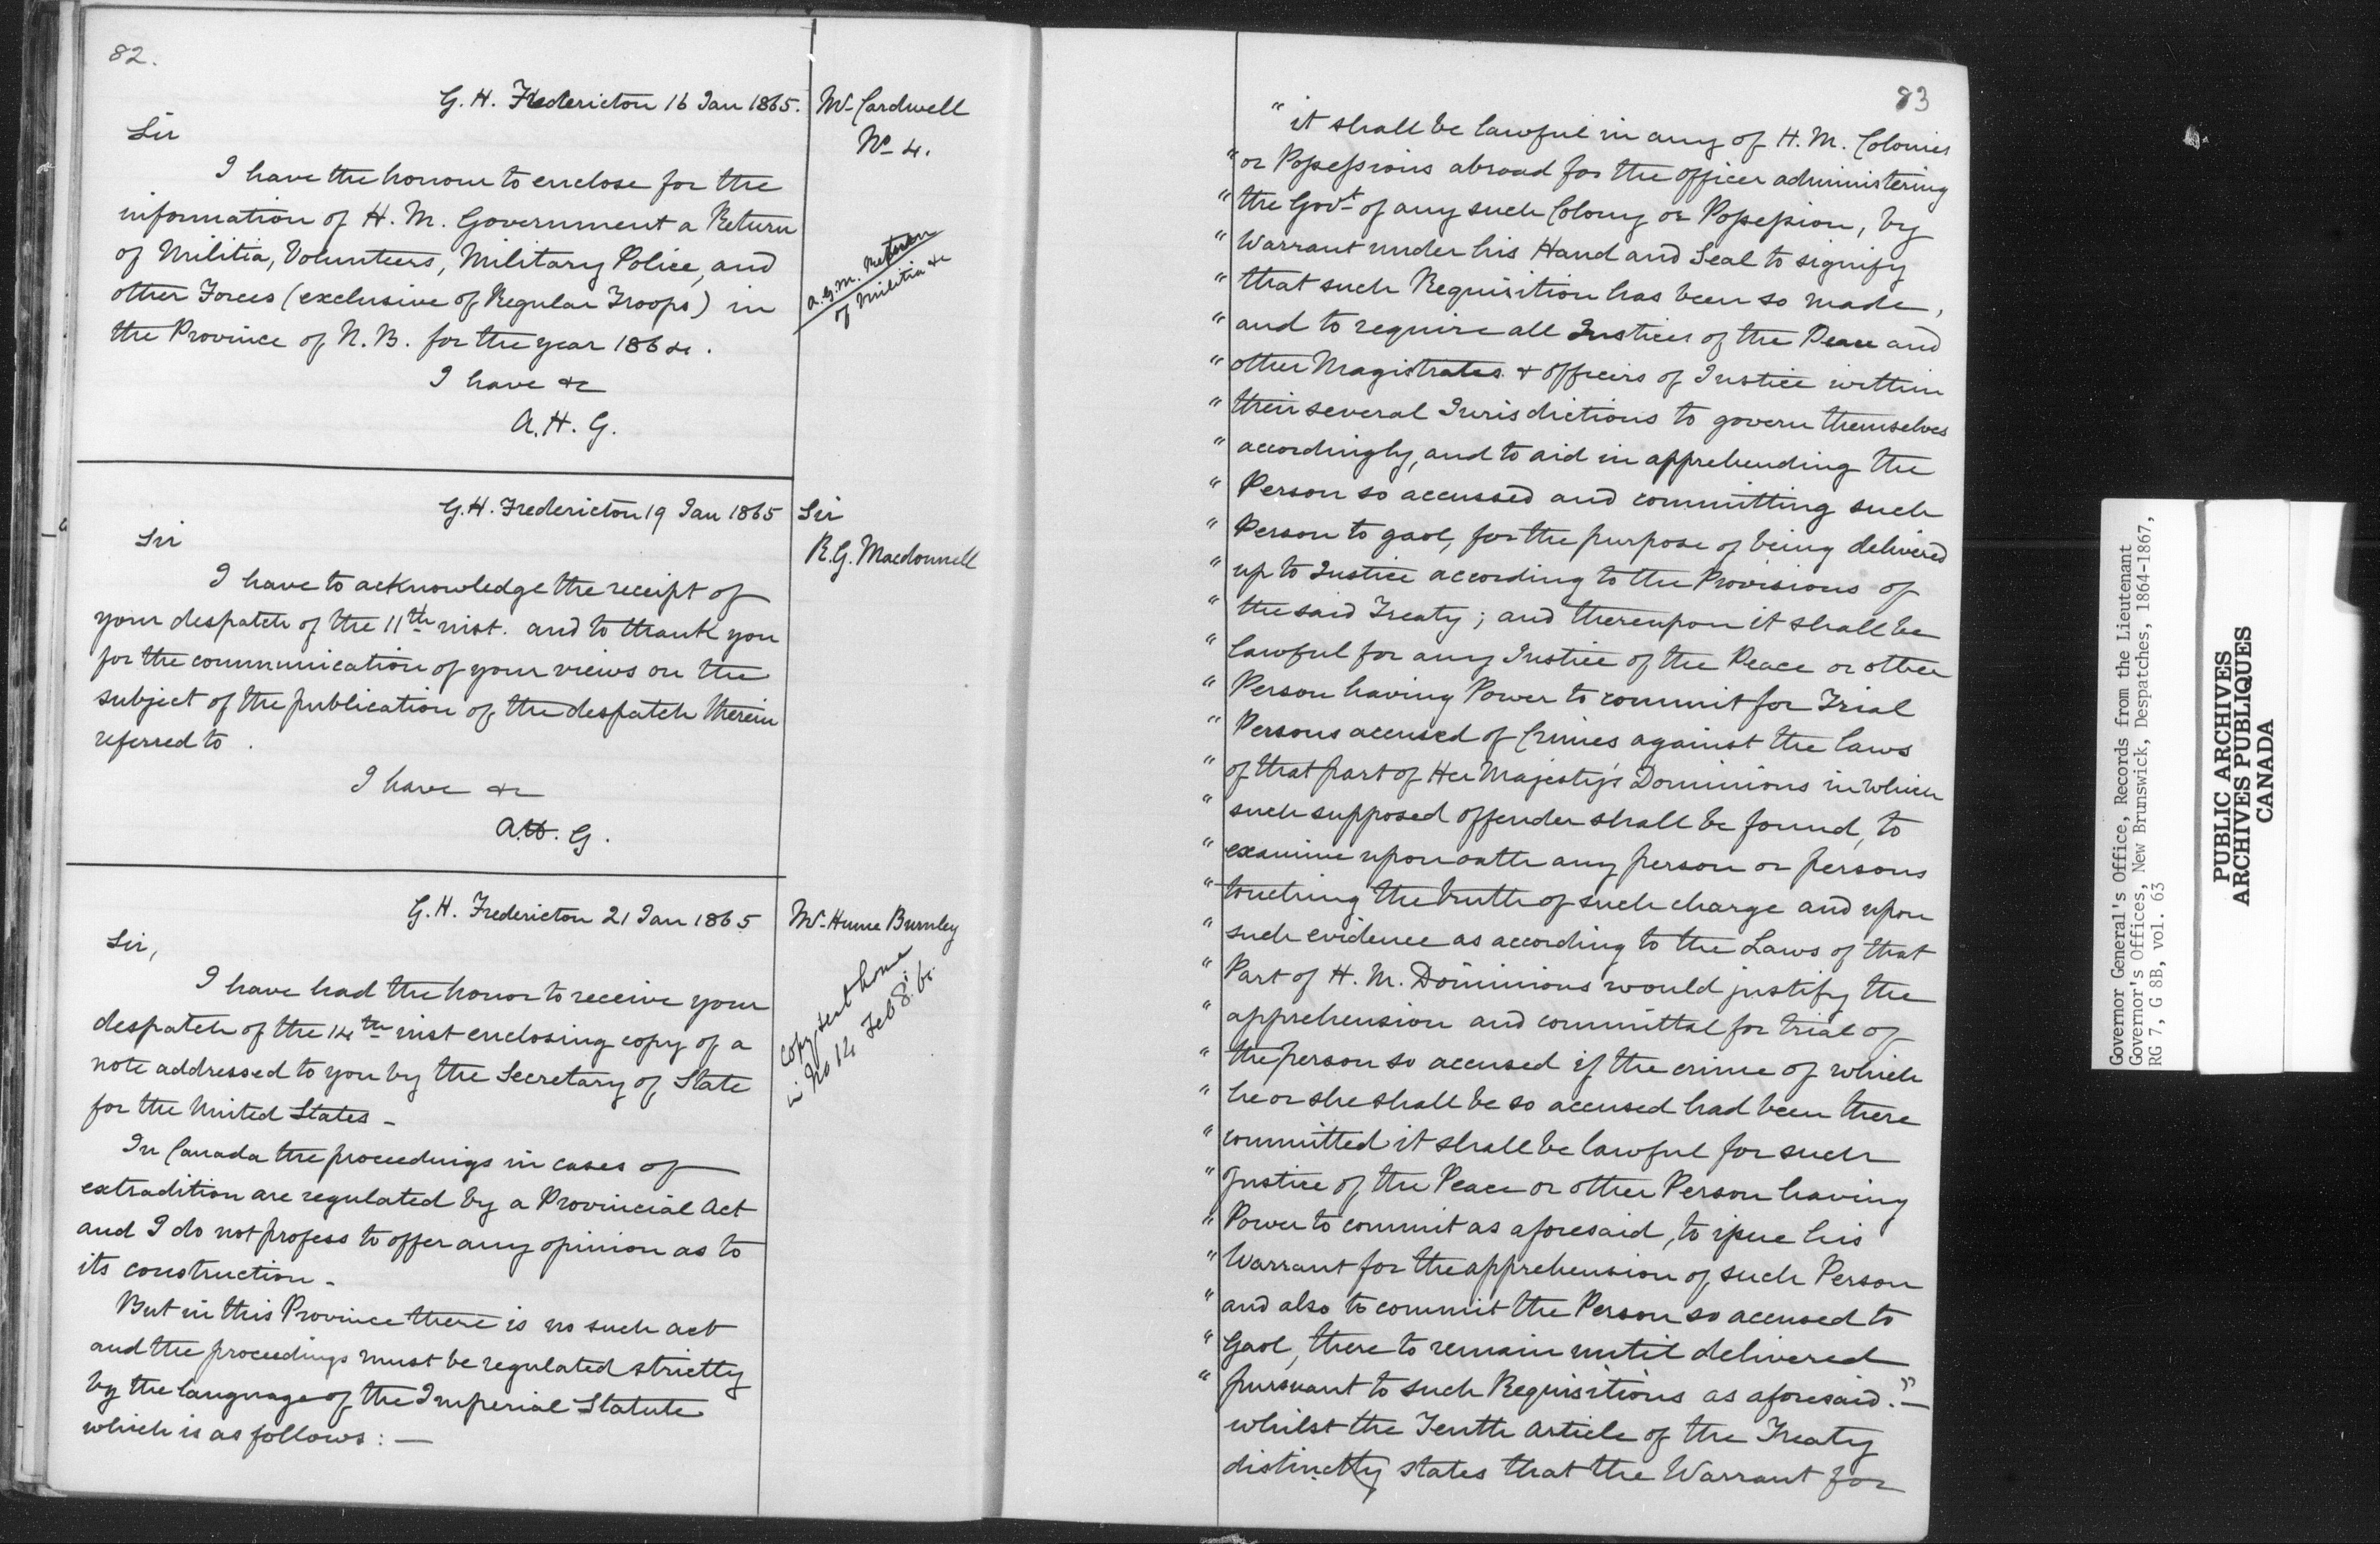 82.
G. H. Fredericton 16 Jan 1865.
Mr. Cardwell
No 4.
Sir
I have the honour to enclose for the
information of H. M. Government a Return
of Militia, Volunteers, Military Police, and
other Forces (exclusive of Regular Troops) in
the Province of N. B. for the year 1864.
I have &c
A. H. G.
A. G. M. Return
of Militia &c
G. H. Fredericton 19 Jan 1865
Sir
R. G. Macdonnell
Sir
I have to acknowledge the receipt of
your despatch of the 11th inst. and to thank you
for the communication of your views on the
subject of the publication of the despatch therein
referred to.
I have &c
A. H. G.
G. H. Fredericton 21 Jan 1865
Mr. Hume Burnley
Copy sent home
in No 14 Feb 8. 65.
Sir,
I have had the honor to receive your
despatch of the 14th inst enclosing copy of a
note addressed to you by the Secretary of State
for the United States -
In Canada the proceedings in cases of
extradition are regulated by a Provincial Act
and I do not profess to offer any opinion as to
its construction -
But in this Province there is no such act
and the proceedings must be regulated strictly
by the language of the Imperial Statute
which is as follows: —
83
" it shall be lawful in any of H. M. Colonies
" or Possessions abroad for the officer administering
" the Govt. of any such Colony or Possession, by
" Warrant under his Hand and Seal to signify
" that such Requisition has been so made,
" and to require all Justices of the Peace and
" other Magistrates & Officers of Justice within
" their several Jurisdictions to govern themselves
" accordingly, and to aid in apprehending the
" Person so accused and committing such
" Person to gaol, for the purpose of being delivered
" up to Justice according to the Provisions of
" the said Treaty; and thereupon it shall be
" lawful for any Justice of the Peace or other
" Person having Power to commit for Trial
" Persons accused of Crimes against the laws
" of that part of Her Majesty's Dominions in which
" such supposed offender shall be found, to
" examine upon oath any person or persons
" touching the truth of such charge and upon
" such evidence as according to the Laws of that
" Part of H. M. Dominions would justify the
" apprehension and committal for trial of
" the person so accused if the crime of which
" he or she shall be so accused had been there
" committed it shall be lawful for such
" Justice of the Peace or other Person having
" Power to commit as aforesaid, to issue his
" Warrant for the apprehension of such Person
" and also to commit the Person so accused to
" Gaol, there to remain until delivered
" pursuant to such Requisitions as aforesaid." —
whilst the Tenth Article of the Treaty
distinctly states that the Warrant for
Governor General's Office, Records from the Lieutenant
Governor's Offices, New Brunswick, Despatches, 1864-1867,
RG 7, G 8B, vol. 63
PUBLIC ARCHIVES
ARCHIVES PUBLIQUES
CANADA